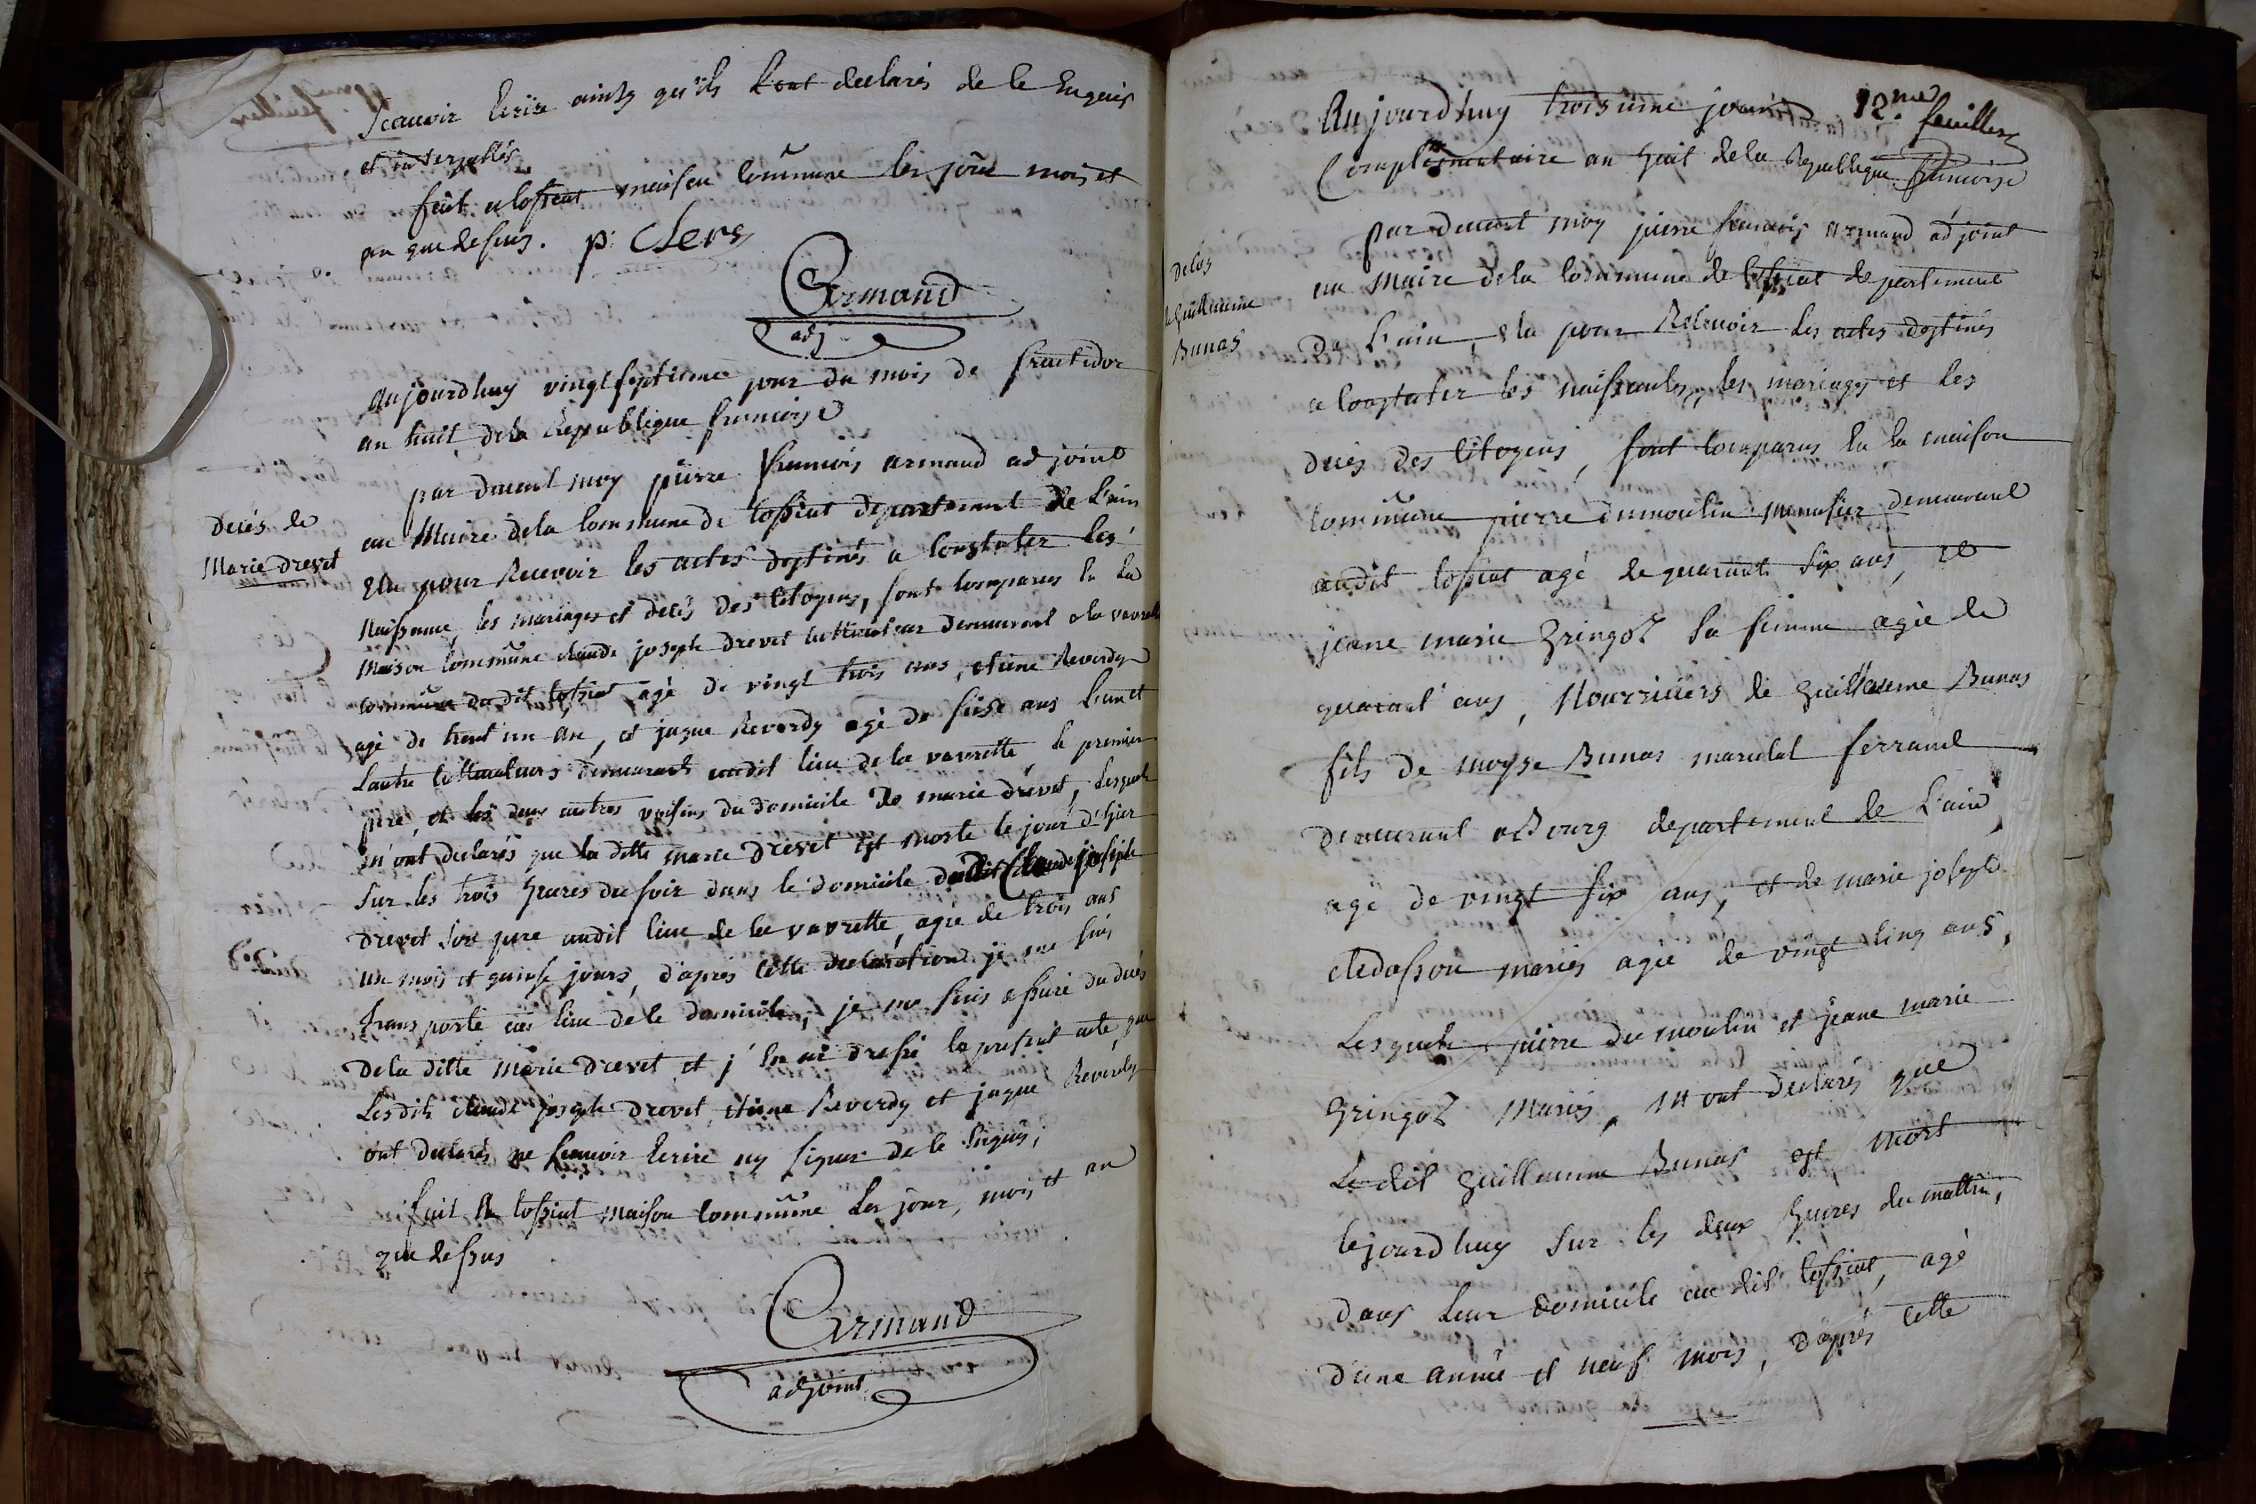 Scauoir Ecrire ainsy qu'ils l'ont declarés de le Enquis
et interpellés
fait a tossiat maison commune les jour mois et
an que dessus. p. Clerc
Armand
adj
aujourdhuy vingt septieme jour du mois de fructidor
an huit de la Republique francoise
par devant moy pierre francois armand adjoint
decés de
Marie drevet
au Maire dela Commune de tossiat departement de L'ain
Elu pour Recevoir les actes destinés a Constater les
Naissance, les mariages et decés des Citoyens, sont comparus En La
Maison Commune claude joseph drevet cultivateur demeurant a la vavrette
commune du dit tossiat agé de vingt trois ans, etiene Reverdy
agé de trent un an, et jaque Reverdy agé de seise ans L'un et
L'autre cultivateurs demeurants audit lieu de la vavrette, le premier
pere, et les deux autres voisins du domicile de marie drevet, Lesquels
m'ont declarés que la ditte marie drevet est morte le jour d'hier
sur les trois heures du soir dans le domicile dudit Claude joseph
drevet son pere audit lieu de la vavrette, agée de trois ans
un mois et quinse jours, d'aprés cette declaration je me suis
transporté au lieu de le domicile, je me suis assuré du decés
De la ditte marie drevet et j'En ai dressé le present acte, que
Lesdits claude joseph drevet, etiene Reverdy et jaque Reverdy
ont declarés ne scauoir Ecrire ny signer de le Enquis,
fait a tossiat maison commune Les jour, mois et an
que dessus
Armand
adjoint
12.me feuillet
Aujourdhuy troisieme jour
Complementaire an huit dela Republique francoise
par devant moy pierre francois armand adjoint
Decés
de Guillaume
Bunas
au Maire dela Commune de tossiat departement
De L'ain, Elu pour Recevoir Les actes destinés
a Constater les naissances, les mariages et les
decés des Citoyens, sont comparus En la maison
commune pierre dumoulin menusier demeurant
audit tossiat agé de quarant six ans, et
jeane marie Gringoz sa femme agée de
quarant ans, Nourriciers de Guillaume Bunas
fils de moyse Bunas marechal ferrand
demeurant a Bourg departement de L'ain
agé de vingt six ans, et de marie joseph
mariés agée de vingt cinq ans,
Lesquels pierre du moulin et jeane marie
Gringoz Mariés, M ont declarés que
Le dit Guillaume Bunas est mort
cejourdhuy sur les deux heures du mattin,
dans Leur domicile au dit tossiat, agé
d'une année et neuf mois, d'aprés cette